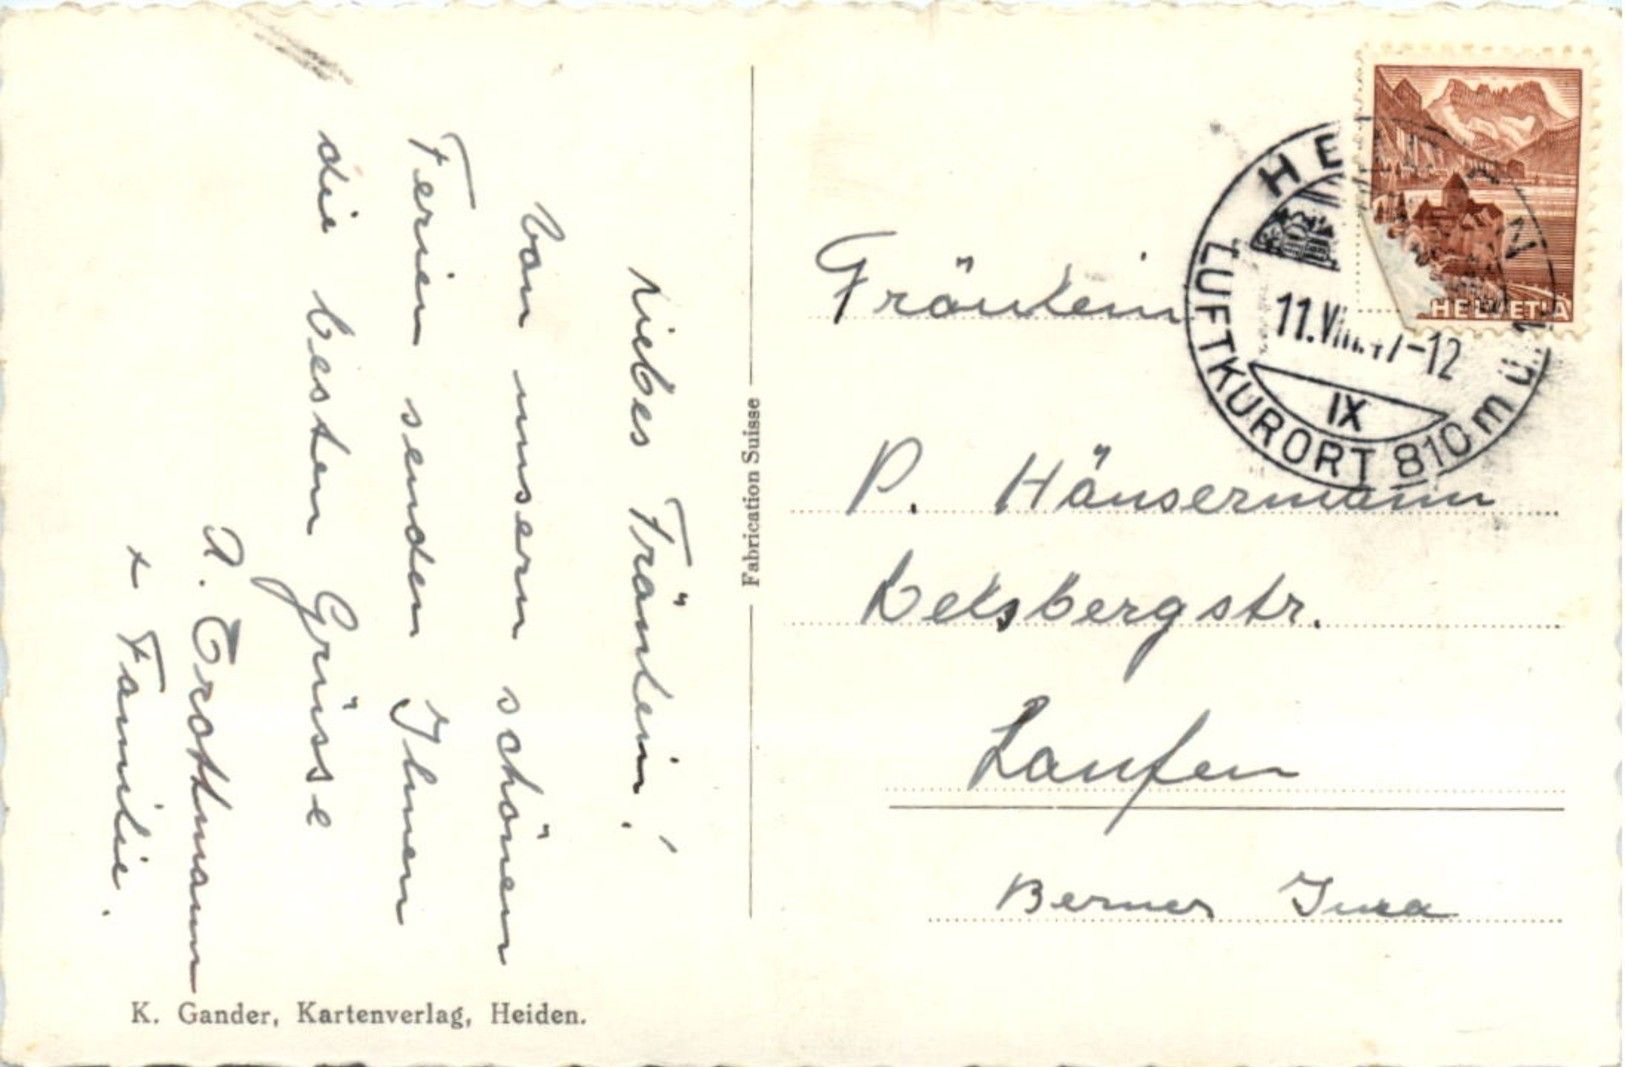 Liebes Fräulein!
Von unsern schönen
Ferien senden Ihnen
die besten Grüsse
+ Familie.
K. Gander, Kartenverlag, Heiden.
Fabrication Suisse
HELVETIA
LUFTKURORT 810 m ü.
-12
IX
Fräulein
P. Häusermann
Laufen
Berner Jura